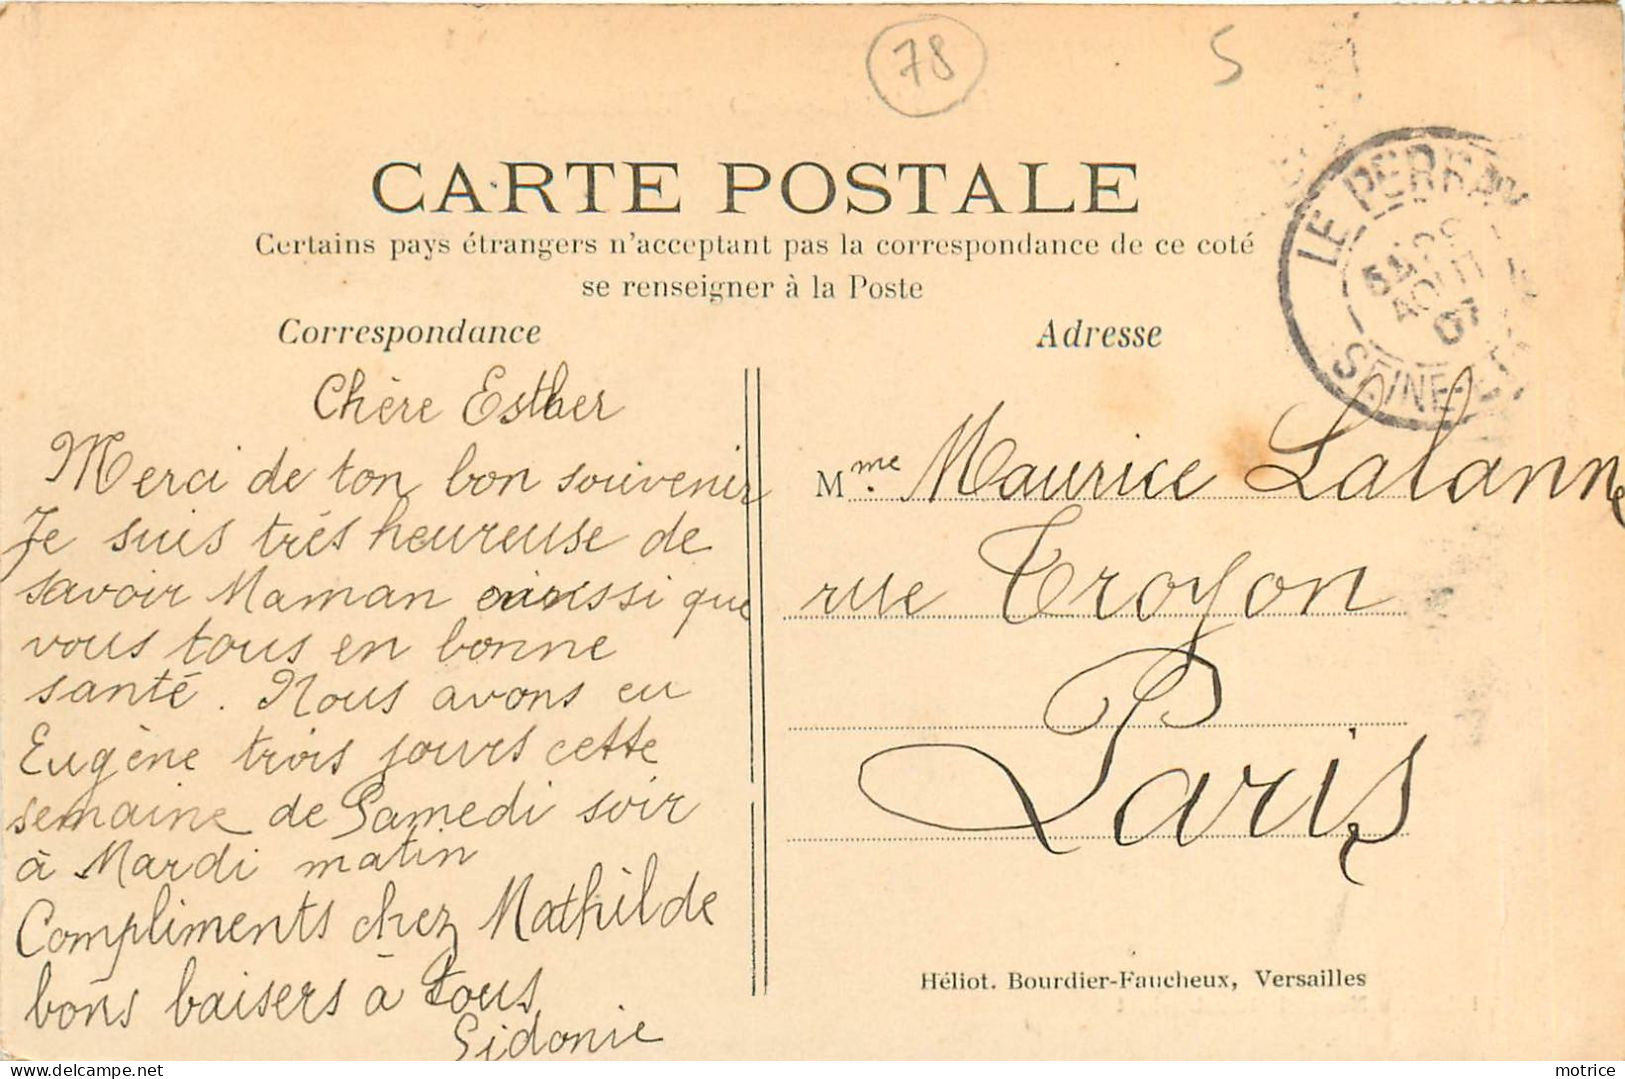 78
5
CARTE POSTALE
Certains pays étrangers n'acceptant pas la correspondance de ce coté
se renseigner à la Poste
Correspondance
Chère Esther
Merci de ton bon souvenir
Je suis très heureuse de
savoir Maman aussi que
vous tous en bonne
santé. Nous avons eu
Eugène trois jours cette
semaine de Samedi soir
à Mardi matin
Compliments chez Mathilde
bons baisers à tous
Sidonie
Adresse
Mme. Maurice Lalanne
rue Troyon
Paris
LE PERRAY
AOUT
07
SEINE-ET
Héliot. Bourdier-Faucheux, Versailles
www.delcampe.net
motrice